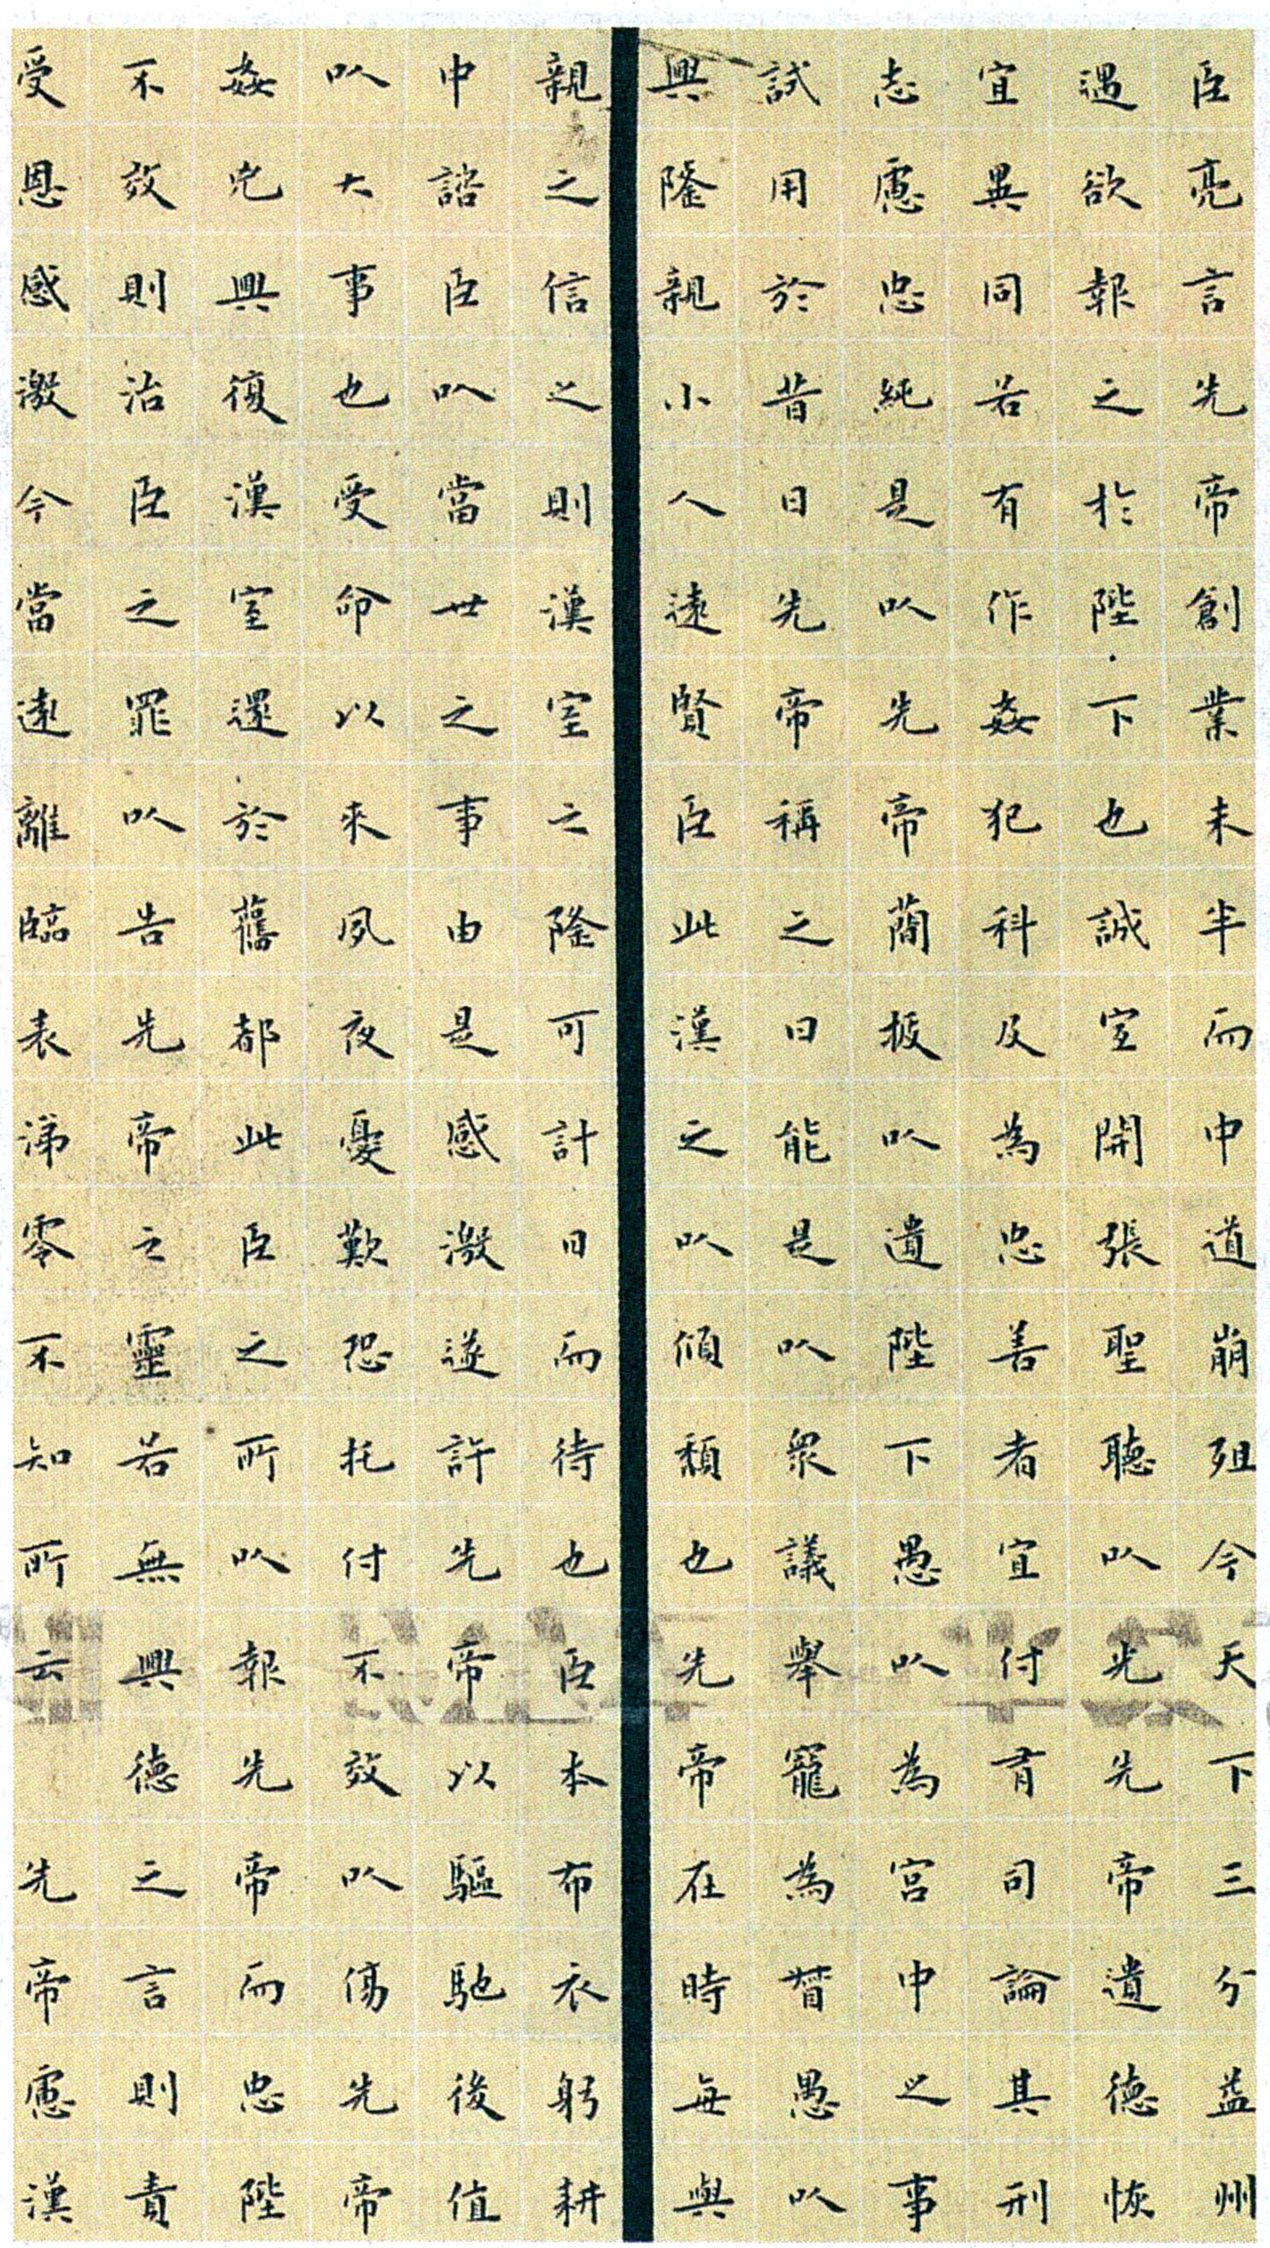 臣亮言先帝創業未半而中道崩殂今天下三分益州
遇欲報之於陛下也誠宜開張聖聽以光先帝遺德恢
宜異同若有作姦犯科及為忠善者宜付有司論其刑
志慮忠純是以先帝蕳拔以遺陛下愚以為宮中之事
試用於昔日先帝稱之曰能是以衆議舉寵為督愚以
興隆親小人遠賢臣此漢之以傾頹也先帝在時每與
親之信之則漢室之隆可計日而待也臣本布衣躬耕
中諮臣以當世之事由是感激遂許先帝以驅馳後值
以大事也受命以來夙夜憂歎恐托付不效以傷先帝
姦兇興復漢室還於舊都此臣之所以報先帝而忠陛
不效則治臣之罪以告先帝之靈若無興德之言則責
受恩感激今當遠離臨表涕零不知所云 先帝慮漢